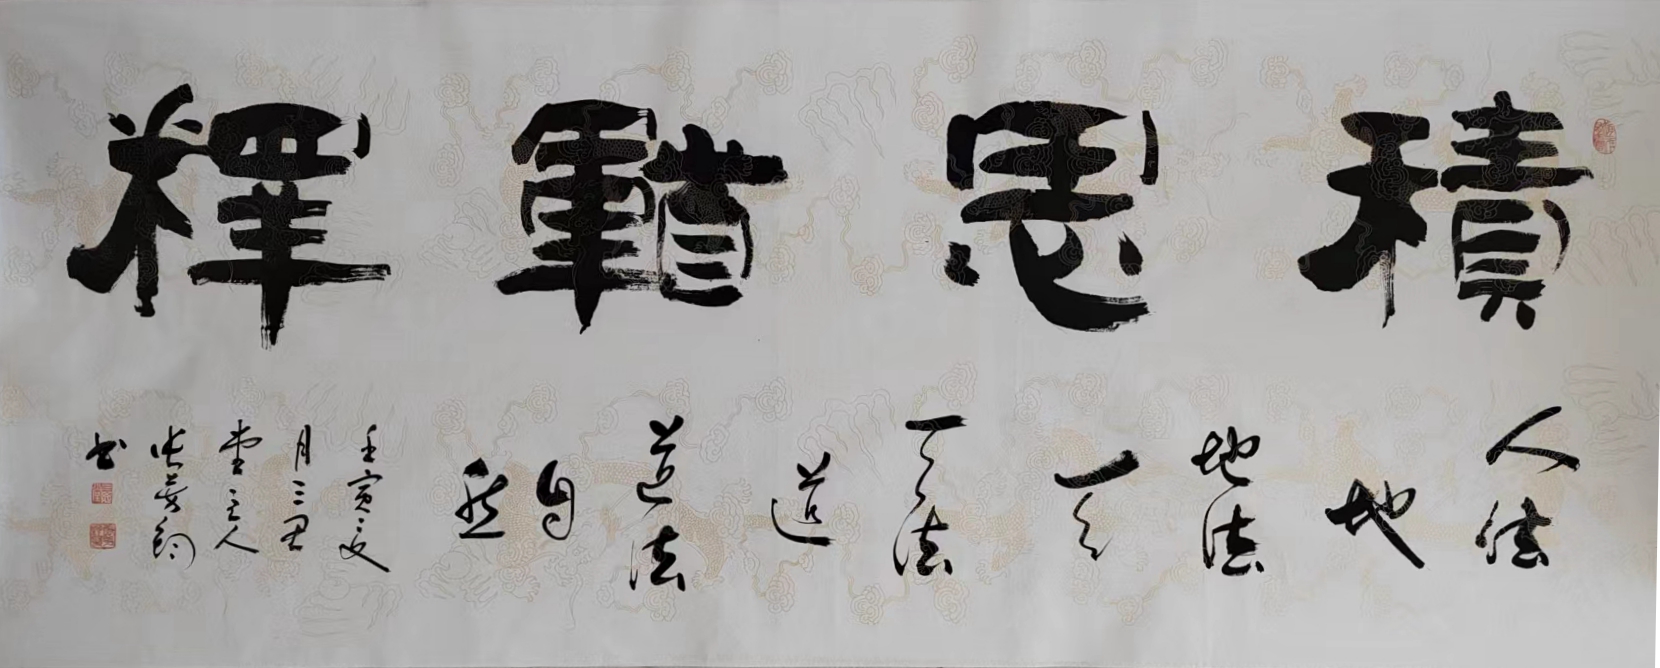 積思釋
人法
地
地法
天
天法
道
道法
自
然
壬寅之夏
月三
堂主人
张
书